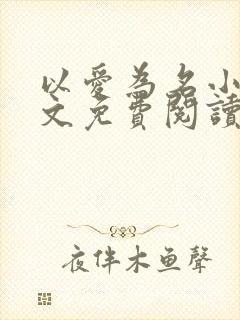 以愛為名小
文免費閱讀
夜伴木鱼聲